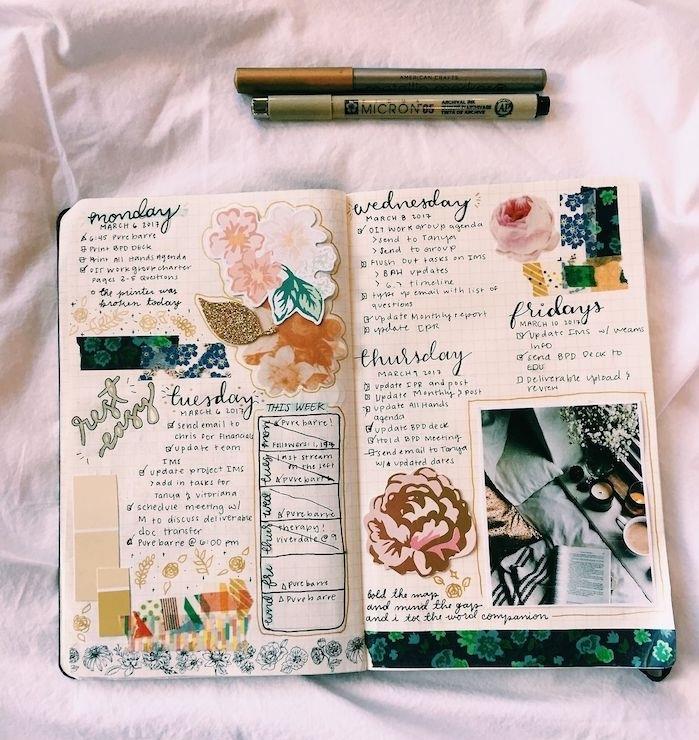 AMERICAN CRAFTS
MICRON 05
ARCHIVAL INK
monday
MARCH 6 2017
6:45 Pure barre
Print BPD Deck
Print All Hands Agenda
OIT Work group charter
Pages 2-5 Questions
the printer was
broken today
rest
easy
tuesday
MARCH 6 2017
send email to
Chris for Financials
update team
IMS
update project IMS
add in tasks for
Tanya & Vitoriana
schedule meeting w/
M to discuss deliverable
doc transfer
Pure barre @ 6:00 pm
THIS WEEK
mon
Pure barre!
Followers:
tues
last stream
on the
Pure barre
wed
Pure barre
thurs
therapy!
riverdate @ 9
fri
Pure barre
Pure barre
wednesday
MARCH 8 2017
OIT Work group agenda
> Send to Tanya
> Send to group
Flush out tasks on IMS
> BAH updates
> 6.7 timeline
type up email with list of
questions
update Monthly report
update IPR
thursday
MARCH 9 2017
update IPR and post
update Monthly & post
update All Hands
agenda
update BPD deck
Hold BPD Meeting
send email to Tanya
w/ updated dates
fridays
MARCH 10 2017
update IMS w/ weams
info
send BPD Deck to
EDU
Deliverable upload &
review
hold the map
and mind the gap
and i to the word companion